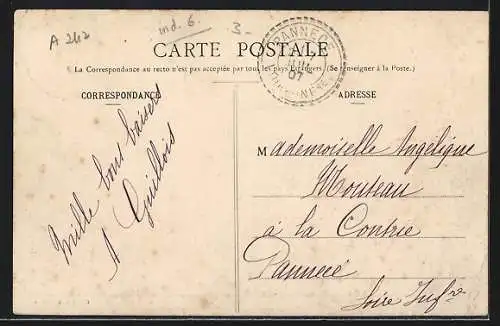 A 242
ind. 6.
3-
CARTE POSTALE
PANNECE
JUIL
07
(La Correspondance au recto n'est pas acceptée par tous les pays Étrangers. (Se renseigner à la Poste.)
CORRESPONDANCE
ADRESSE
Mille bons baisers
A Guillois
Mademoiselle Angélique
Mouteau
à la Contrie
Pannecé
Loire Infre